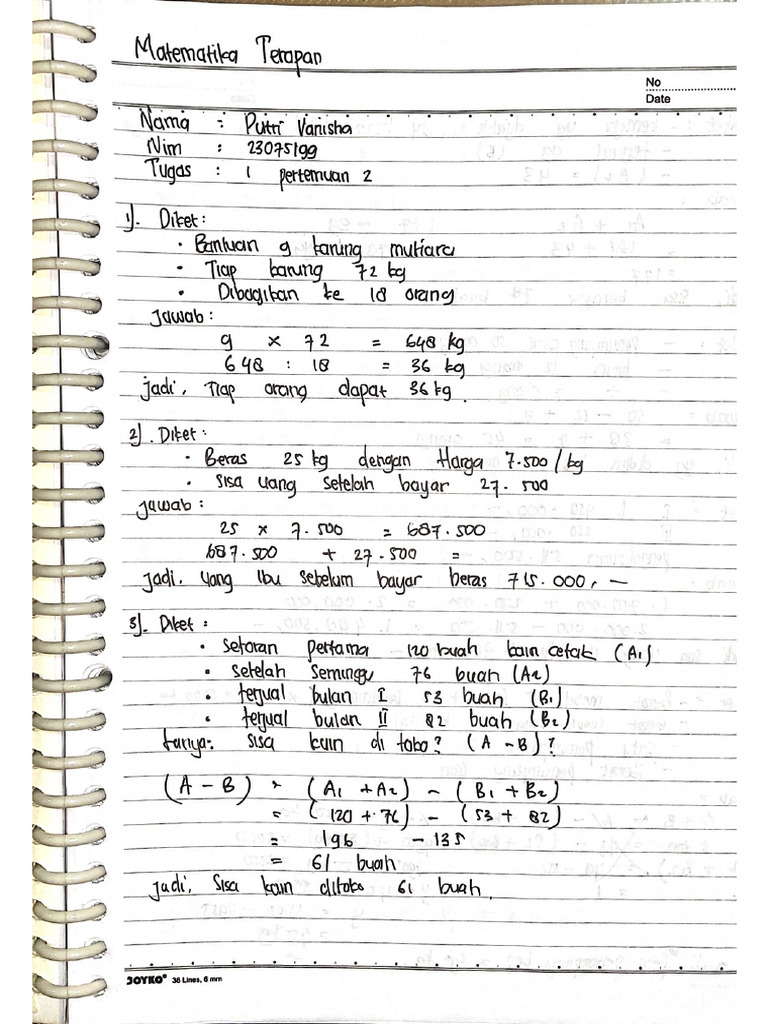 Matematika Terapan
No
Date
Nama : Putri Vanisha
Nim : 23075199
Tugas : 1 pertemuan 2
1). Diket:
• Bantuan 9 karung mutiara
• Tiap karung 72 kg
• Dibagikan ke 18 orang
Jawab:
9 x 72 = 648 kg
648 : 18 = 36 kg
Jadi, Tiap orang dapat 36 kg.
2). Diket:
• Beras 25 kg dengan Harga 7.500/kg
• Sisa uang setelah bayar 27.500
Jawab:
25 x 7.500 = 687.500
687.500 + 27.500 =
Jadi. uang Ibu sebelum bayar beras 715.000,-
3). Diket:
• Setoran pertama 120 buah kain cetak (A1)
• Setelah Seminggu 76 buah (A2)
• terjual bulan I 53 buah (B1)
• terjual bulan II 82 buah (B2)
tanya: Sisa kain di toko? (A - B)?
(A - B) = (A1 + A2) - (B1 + B2)
= (120 + 76) - (53 + 82)
= 196 - 135
= 61 buah
Jadi, Sisa kain ditoko 61 buah.
JOYKO® 36 Lines, 6 mm